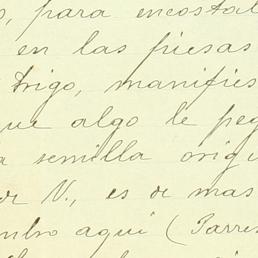 , para encostal
en las piesas
trigo, manifies
que algo le peg
a semilla origi
de V., es de mas
mbro aquí (Parre